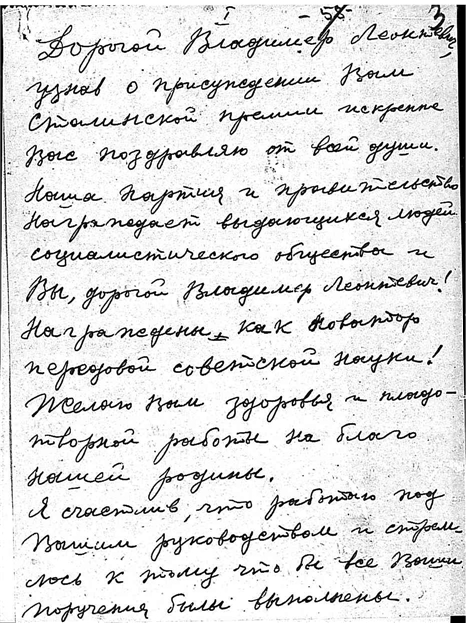 I
3
Дорогой Владимир Леонтевич,
узнав о присуждении Вам
Сталинской премии искренне
Вас поздравляю от всей души.
Наша партия и правительство
награждает выдающихся людей
социалистического общества и
Вы, дорогой Владимир Леонтевич!
Награждены, как новатор
передовой советской науки!
Желаю Вам здоровья и плодо-
творной работы на благо
нашей родины.
Я счастлив, что работаю под
Вашим руководством и стрем-
люсь к тому что бы все Ваши
поручения были выполнены.